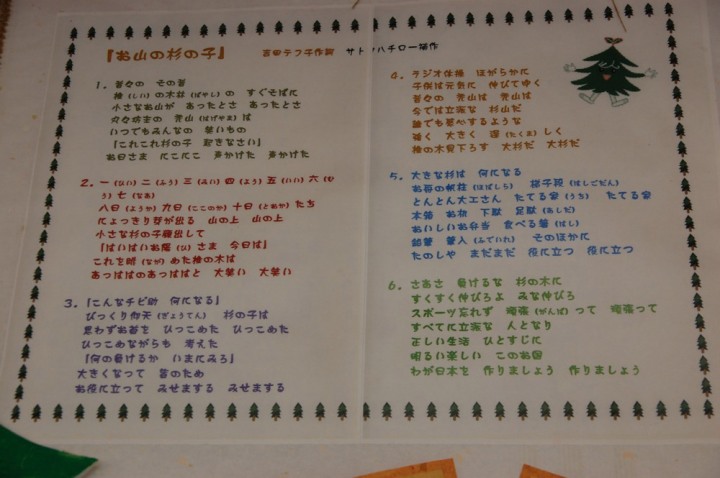 『お山の杉の子』 吉田テフ子作詞 サトウハチロー補作
1. 昔々の その昔
椎(しい)の木林(ばやし)の すぐそばに
小さなお山が あったとさ あったとさ
丸々坊主の 禿山(はげやま)は
いつでもみんなの 笑いもの
「これこれ杉の子 起きなさい」
お日さま にこにこ 声かけた 声かけた
2. 一(ひい)二(ふう)三(みい)四(よう)五(いい)六(む
う)七(なあ)
八日(ようか)九日(ここのか)十日(とおか)たち
にょっきり芽が出る 山の上 山の上
小さな杉の子顔出して
「はいはいお陽(ひ)さま 今日は」
これを眺(なが)めた椎の木は
あっははのあっははと 大笑い 大笑い
3. 「こんなチビ助 何になる」
びっくり仰天(ぎょうてん) 杉の子は
思わずお首を ひっこめた ひっこめた
ひっこめながらも 考えた
「何の負けるか いまにみろ」
大きくなって 皆のため
お役に立って みせまする みせまする
4. ラジオ体操 ほがらかに
子供は元気に 伸びてゆく
昔々の 禿山は 禿山は
今では立派な 杉山だ
誰でも感心するような
強く 大きく 逞(たくま)しく
椎の木見下ろす 大杉だ 大杉だ
5. 大きな杉は 何になる
お舟の帆柱(ほばしら) 梯子段(はしごだん)
とんとん大工さん たてる家(うち) たてる家
本箱 お机 下駄 足駄(あしだ)
おいしいお弁当 食べる箸(はし)
鉛筆 筆入(ふでいれ) そのほかに
たのしや まだまだ 役に立つ 役に立つ
6. さあさ 負けるな 杉の木に
すくすく伸びろよ みな伸びろ
スポーツ忘れず 頑張(がんば)って 頑張って
すべてに立派な 人となり
正しい生活 ひとすじに
明るい楽しい このお国
わが日本を 作りましょう 作りましょう